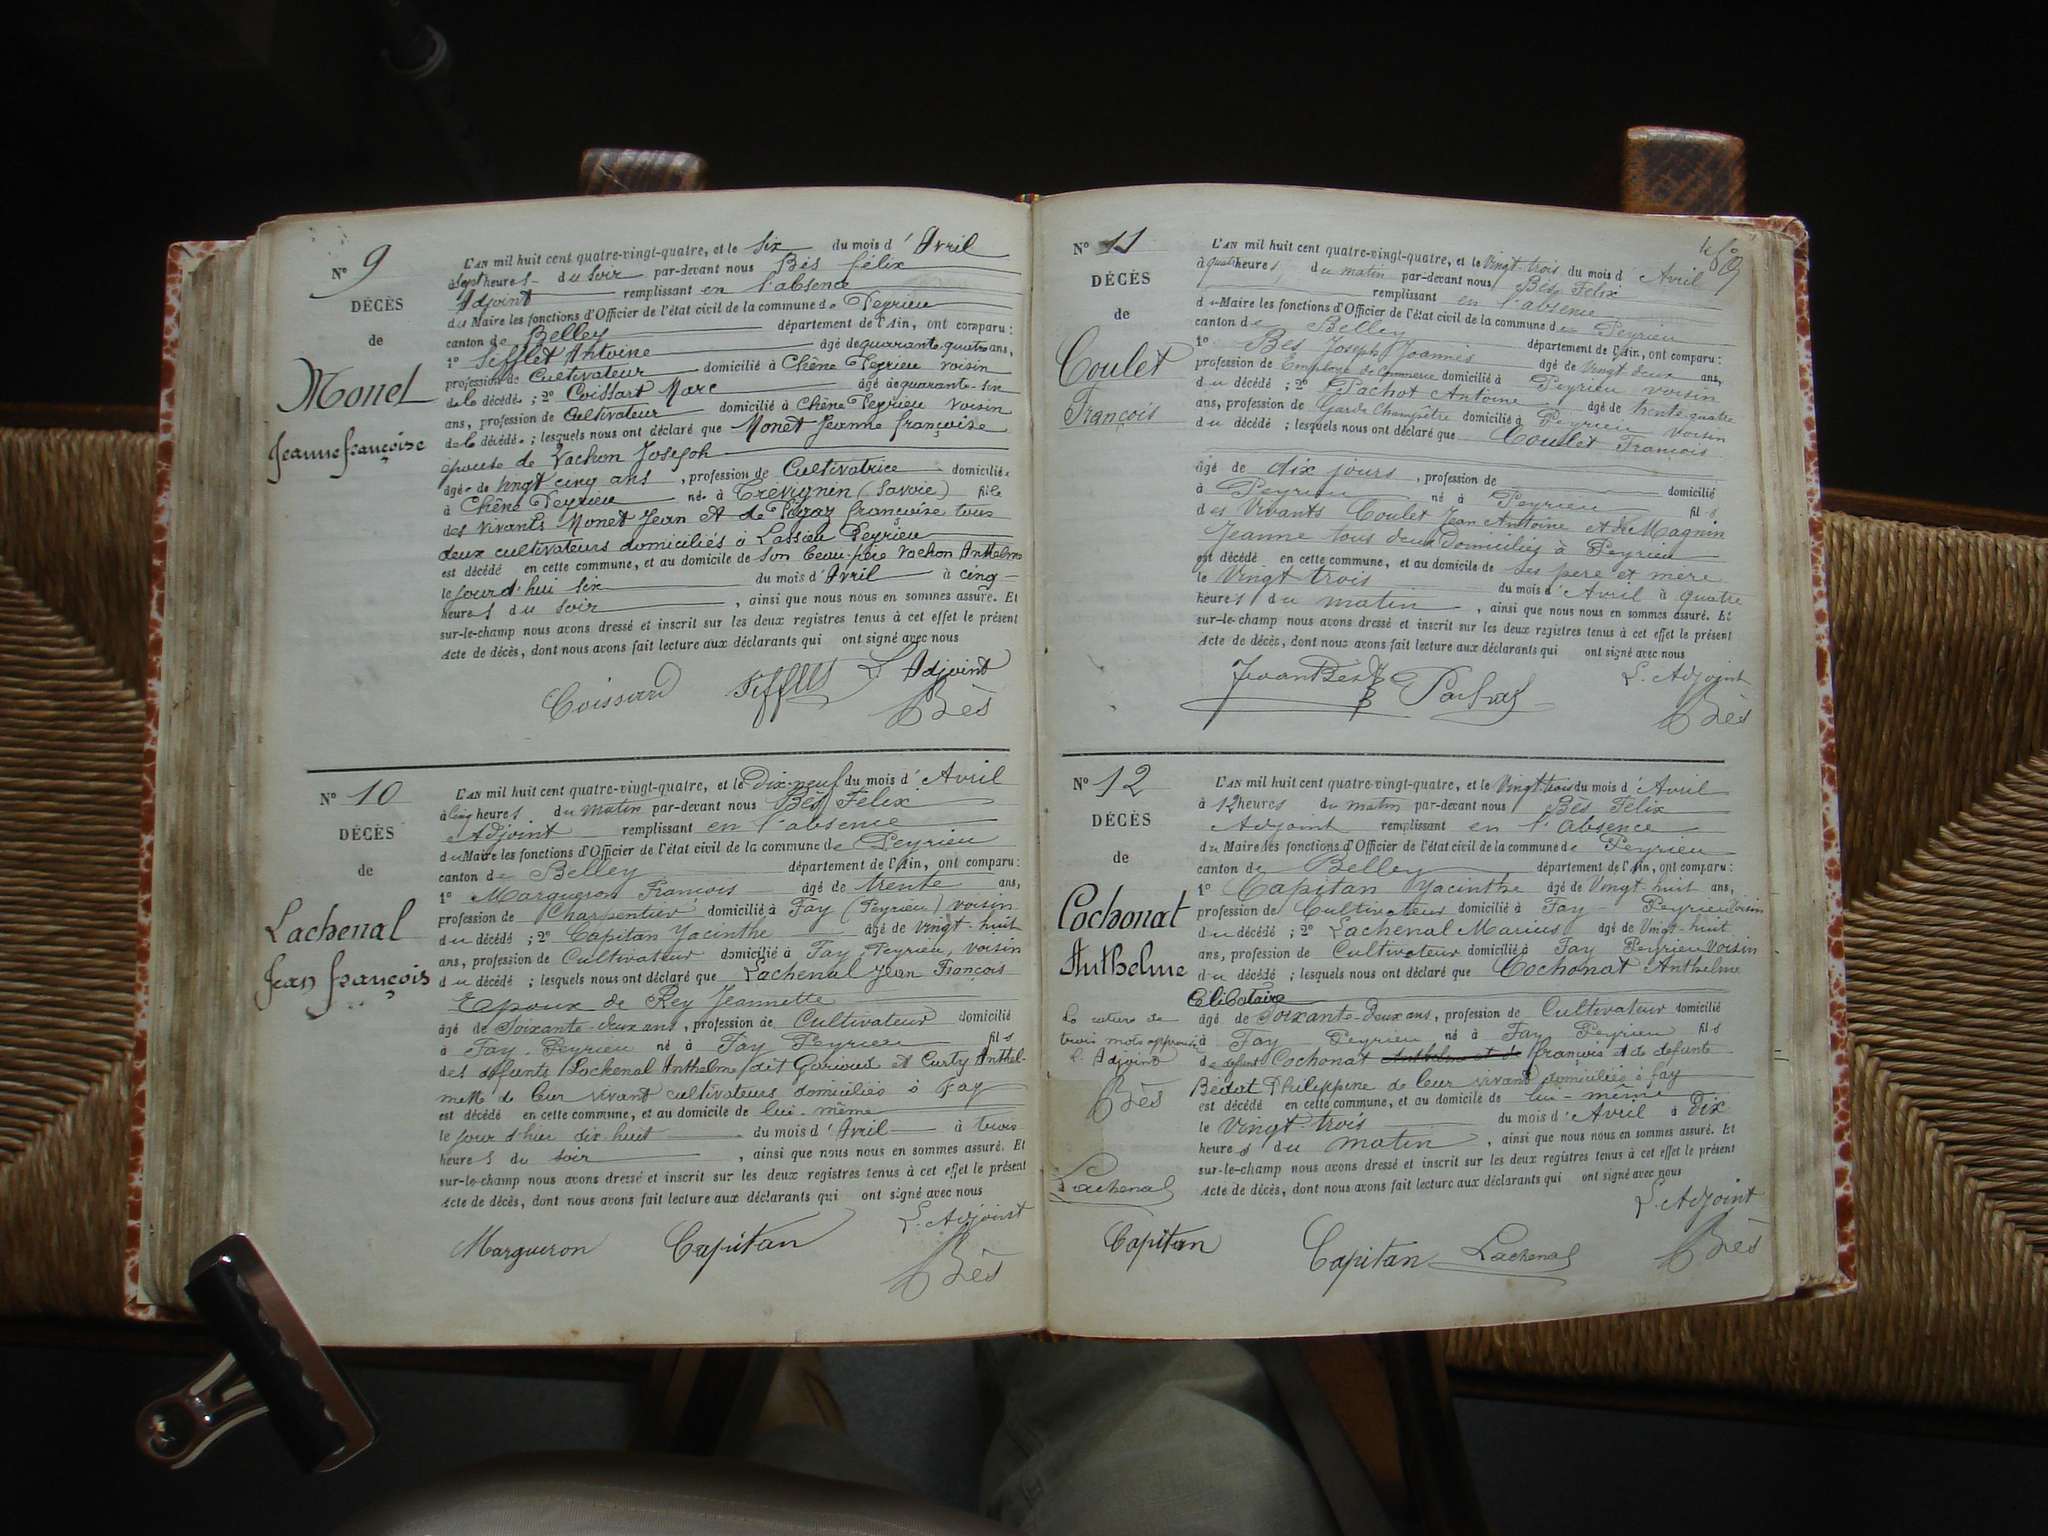 N° 9
DÉCÈS
de
Monet
Jeanne françoise
L'AN mil huit cent quatre-vingt-quatre, et le six du mois d'Avril
à sept heures du soir par-devant nous Bès félix
Adjoint remplissant en l'absence
du Maire les fonctions d'Officier de l'état civil de la commune de Peyrieu
canton de Belley département de l'Ain, ont comparu :
1° Siffllet Antoine âgé de quarante-quatre ans,
profession de Cultivateur domicilié à Chêne Peyrieu voisin
de la décédée ; 2° Coissart Marc âgé de quarante-six
ans, profession de Cultivateur domicilié à Chêne Peyrieu voisin
de la décédée ; lesquels nous ont déclaré que Monet Jeanne françoise
épouse de Vachon Joseph
âgée de vingt cinq ans, profession de Cultivatrice domiciliée
à Chêne Peyrieu née à Trévignin (Savoie) fille
des vivants Monet Jean et de françoise tous
deux cultivateurs domiciliés à Lassieu Peyrieu
est décédé en cette commune, et au domicile de son beau-père Vachon Anthelme
le jour d'hui six du mois d'Avril à cinq
heures du soir, ainsi que nous nous en sommes assuré. Et
sur-le-champ nous avons dressé et inscrit sur les deux registres tenus à cet effet le présent
Acte de décès, dont nous avons fait lecture aux déclarants qui ont signé avec nous
L'Adjoint
Coissard Siffllet Bès
N° 10
DÉCÈS
de
Lachenal
Jean françois
L'AN mil huit cent quatre-vingt-quatre, et le Dix-neuf du mois d'Avril
à cinq heures du matin par-devant nous Bès Félix
Adjoint remplissant en l'absence
du Maire les fonctions d'Officier de l'état civil de la commune de Peyrieu
canton de Belley département de l'Ain, ont comparu :
1° Margueron François âgé de trente ans,
profession de Charpentier domicilié à Fay (Peyrieu) voisin
du décédé ; 2° Capitan Yacinthe âgé de vingt-huit
ans, profession de Cultivateur domicilié à Fay Peyrieu, voisin
du décédé ; lesquels nous ont déclaré que Lachenal Jean François
Epoux de Rey Jeannette
âgé de Soixante-deux ans, profession de Cultivateur domicilié
à Fay-Peyrieu né à Fay Peyrieu fils
des défunts Lachenal Anthelme dit et Curty Anthel-
mette de leur vivant cultivateurs domiciliés à Fay
est décédé en cette commune, et au domicile de lui-même
le jour d'hier dix huit du mois d'Avril à trois
heures du soir, ainsi que nous nous en sommes assuré. Et
sur-le-champ nous avons dressé et inscrit sur les deux registres tenus à cet effet le présent
Acte de décès, dont nous avons fait lecture aux déclarants qui ont signé avec nous
L'Adjoint
Margueron Capitan Bès
N° 11
DÉCÈS
de
Coulet
François
L'AN mil huit cent quatre-vingt-quatre, et le Vingt-trois du mois d'Avril
à quatre heures du matin par-devant nous Bès Félix
remplissant en l'absence
du Maire les fonctions d'Officier de l'état civil de la commune de Peyrieu
canton de Belley département de l'Ain, ont comparu :
1° Bès Joseph Joannès âgé de Vingt deux ans,
profession de Employé de Commerce domicilié à Peyrieu voisin
du décédé ; 2° Pachot Antoine âgé de trente-quatre
ans, profession de Garde Champêtre domicilié à Peyrieu voisin
du décédé ; lesquels nous ont déclaré que Coulet François
âgé de dix jours, profession de domicilié
à Peyrieu né à Peyrieu fils
des Vivants Coulet Jean Antoine et de Magnin
Jeanne tous deux Domiciliés à Peyrieu
est décédé en cette commune, et au domicile de ses père et mère
le Vingt trois du mois d'Avril à quatre
heures du matin, ainsi que nous nous en sommes assuré. Et
sur-le-champ nous avons dressé et inscrit sur les deux registres tenus à cet effet le présent
Acte de décès, dont nous avons fait lecture aux déclarants qui ont signé avec nous
L'Adjoint
Bès
N° 12
DÉCÈS
de
Cochonat
Anthelme
La rature de
trois mots approuvée
L'Adjoint
Bès
Lachenal
Capitan
L'AN mil huit cent quatre-vingt-quatre, et le Vingt trois du mois d'Avril
à 12 heures du matin par-devant nous Bès Félix
Adjoint remplissant en l'absence
du Maire les fonctions d'Officier de l'état civil de la commune de Peyrieu
canton de Belley département de l'Ain, ont comparu :
1° Capitan Yacinthe âgé de Vingt-huit ans,
profession de Cultivateur domicilié à Fay Peyrieu voisin
du décédé ; 2° Lachenal Marius âgé de Vingt-huit
ans, profession de Cultivateur domicilié à Fay Peyrieu voisin
du décédé ; lesquels nous ont déclaré que Cochonat Anthelme
Célibataire
âgé de Soixante-deux ans, profession de Cultivateur domicilié
à Fay Peyrieu né à Fay Peyrieu fils
de défunt Cochonat Anthelme et de françois et de defunte
Philippine de leur vivant domiciliés à fay
est décédé en cette commune, et au domicile de lui-même
le Vingt trois du mois d'Avril à Dix
heures du matin, ainsi que nous nous en sommes assuré. Et
sur-le-champ nous avons dressé et inscrit sur les deux registres tenus à cet effet le présent
Acte de décès, dont nous avons fait lecture aux déclarants qui ont signé avec nous
L'Adjoint
Capitan Lachenal Bès